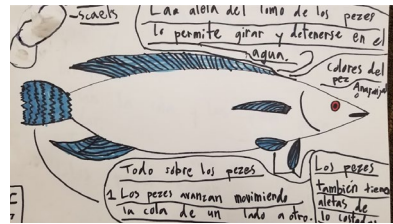 scaels
Laa aleta del lomo de los pezes
le permite girar y detenerse en el
agua.
Colores del
pez
Todo sobre los pezes
1 Los pezes avanzan movimiendo
la cola de un lado a otro.
Los pezes
también tienen
aletas de